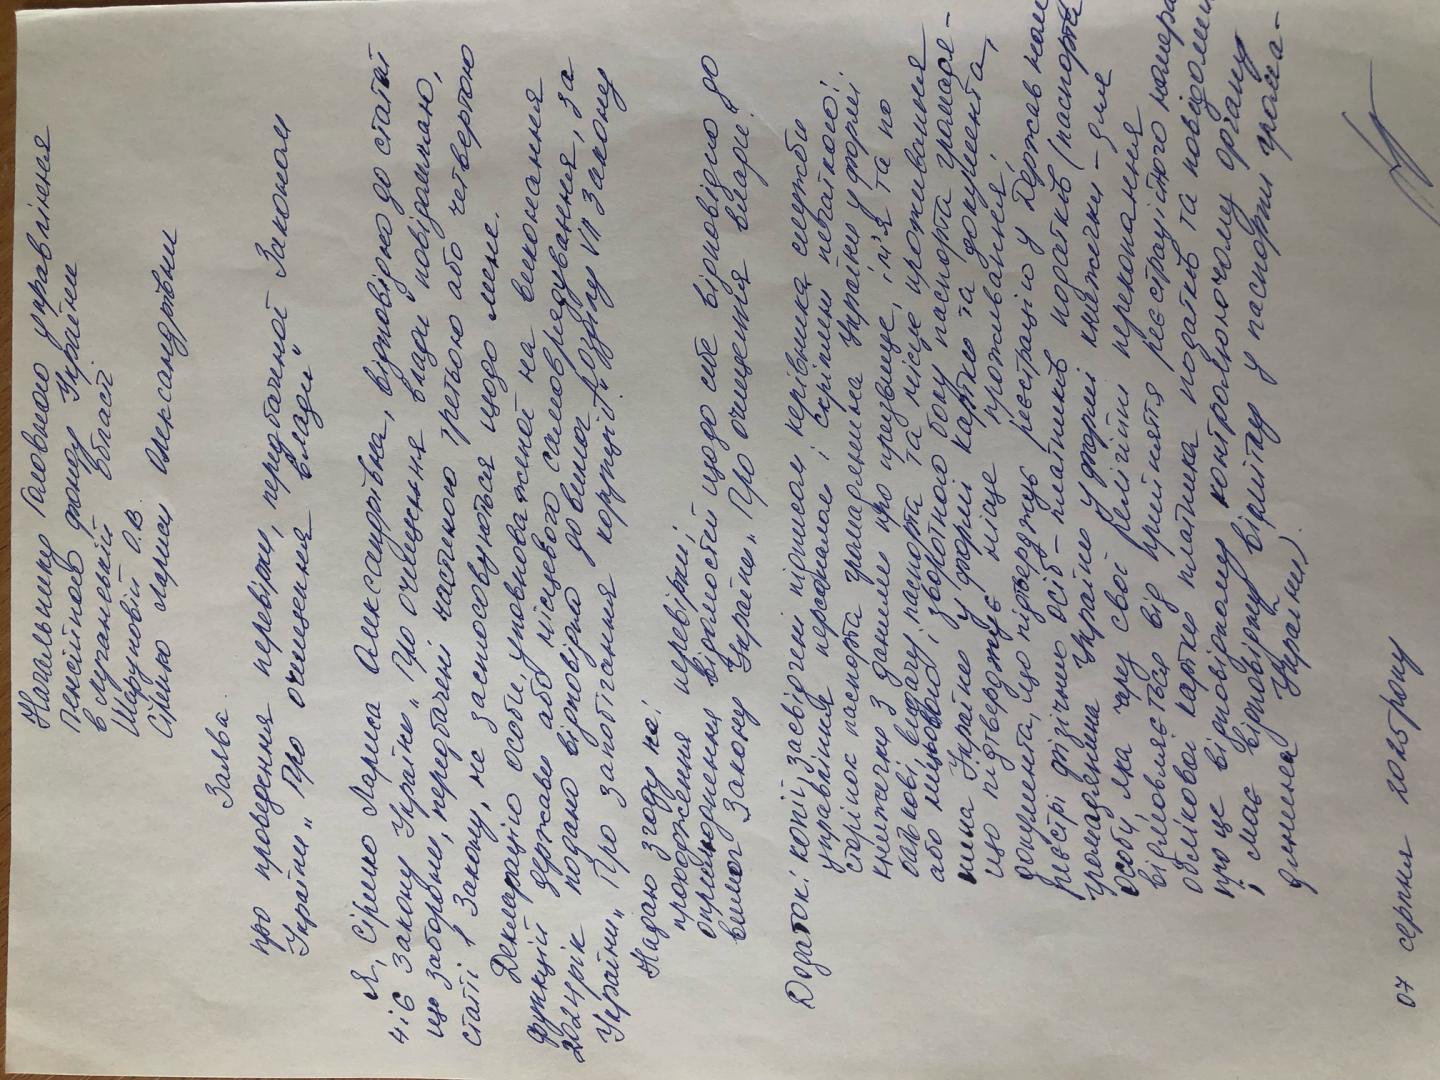 Начальнику Головного управління
Пенсійного фонду України
в Луганській області
Шеруновій О.В.
Сінько Лариси Олександрівни
Заява
про проведення перевірки, передбаченої Законом
України „Про очищення влади"
Я, Сінько Лариса Олександрівна, відповідно до статті
4 і 6 Закону України „Про очищення влади повідомляю,
що заборони, передбачені частиною третьою або четвертою
статті 1 Закону, не застосовуються щодо мене.
Декларацію особи, уповноваженої на виконання
функцій держави або місцевого самоврядування, за
2024 рік подано відповідно до вимог розділу VII Закону
України „Про запобігання корупції".
Надаю згоду на:
проходження перевірки;
оприлюднення відомостей щодо себе відповідно до
вимог Закону України „Про очищення влади".
Додаток: копії, засвідчені підписом керівника служби
управління персоналом і скріплені печаткою:
сторінок паспорта громадянина України у формі
книжечки з даними про прізвище, ім'я та по
батькові, видачу паспорта та місце проживання
або лицьового і зворотного боку паспорта громадя-
нина України у формі картки та документа,
що підтверджує місце проживання;
документа, що підтверджує реєстрацію у Державному
реєстрі фізичних осіб – платників податків (паспорта
громадянина України у формі книжечки – для
особи, яка через свої релігійні переконання
відмовляється від прийняття реєстраційного номера
облікової картки платника податків та повідомила
про це відповідному контролюючому органу
і має відповідну відмітку у паспорті грома-
дянина України).
07 серпня 2025 року